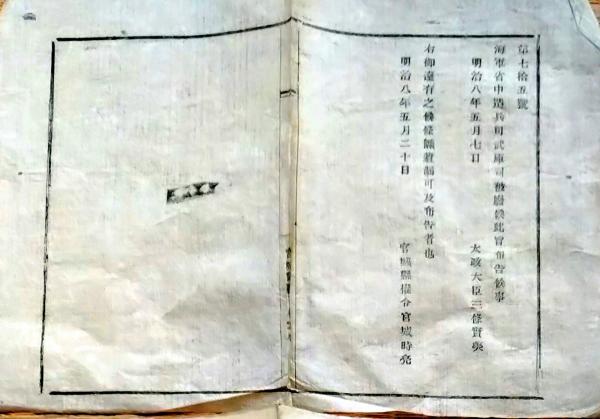 第七拾五號
海軍省中造兵司武庫司被廢候此旨布告候事
明治八年五月七日
太政大臣三條實美
右御達有之候條
可及布告者也
明治八年五月二十日
宮城縣權令宮城時亮